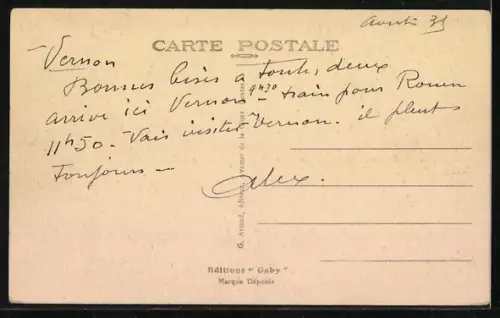 Août 35
CARTE POSTALE
Vernon
Bonnes bises a toutes deux
arrive ici Vernon 9h30 - train pour Rouen
11h50 - Vais visiter Vernon. il pleut
Toujours -
Alex.
G. Artaud, éditeur,
Editions "Gaby"
Marque Déposée